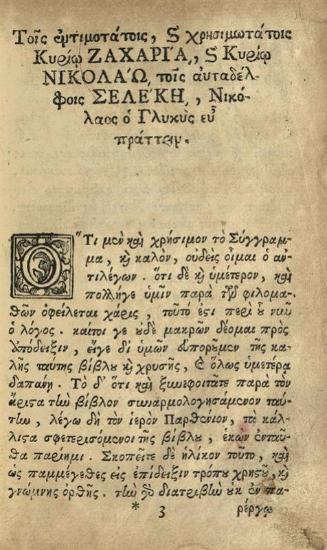 Τοῖς ἐντιμοτάτοις, ϗ χρησιμωτάτοις
Κυρίῳ ΖΑΧΑΡΙΑ, ϗ Κυρίῳ
ΝΙΚΟΛΑΩ, τοῖς αὐταδέλ-
φοις ΣΕΛΕΚΗ, Νικό-
λαος ὁ Γλυκὺς εὖ
πράττειν.
Ὅτι μὲν καὶ χρήσιμον τὸ Σύγγραμ-
μα, ϗ καλὸν, οὐδεὶς οἶμαι ὁ ἀν-
τιλέγων. ὅτι δὲ ϗ ὑμέτερον, καὶ
πολλή γε ὑμῖν παρὰ τῶν φιλομα-
θῶν ὀφείλεται χάρις, τοῦτό ἐστι περὶ οὗ νῦν
ὁ λόγος. καίτοι γε οὐδὲ μακρῶν δέομαι πρὸς
ἀπόδειξιν, εἴγε δι' ὑμῶν εὐποροῦμεν τῆς κα-
λῆς ταύτης βίβλου ϗ χρυσῆς, ϗ ὅλως ὑμετέρᾳ
δαπάνῃ. Τὸ δ' ὅτι καὶ ξυνεφοιτᾶτε παρὰ τὸν
ἄριστα τὴν βίβλον συναρμολογησάμενον ταύ-
την, λέγω δὴ τὸν ἱερὸν Παρθένιον, τὰ κάλ-
λιστα σφετερισόμενοι τῆς βίβλου, ἑκὼν ἐνταῦ-
θα παρίημι. Σκοπεῖτε δὲ ἡλίκον τοῦτο, καὶ
ὡς παμμέγεθες εἰς ἐπίδειξιν τρόπου χρηστοῦ, ϗ
γνώμης ὀρθῆς. τὴν διατριβὴν οὐκ ἐν πα-
* 3 ρέργῳ